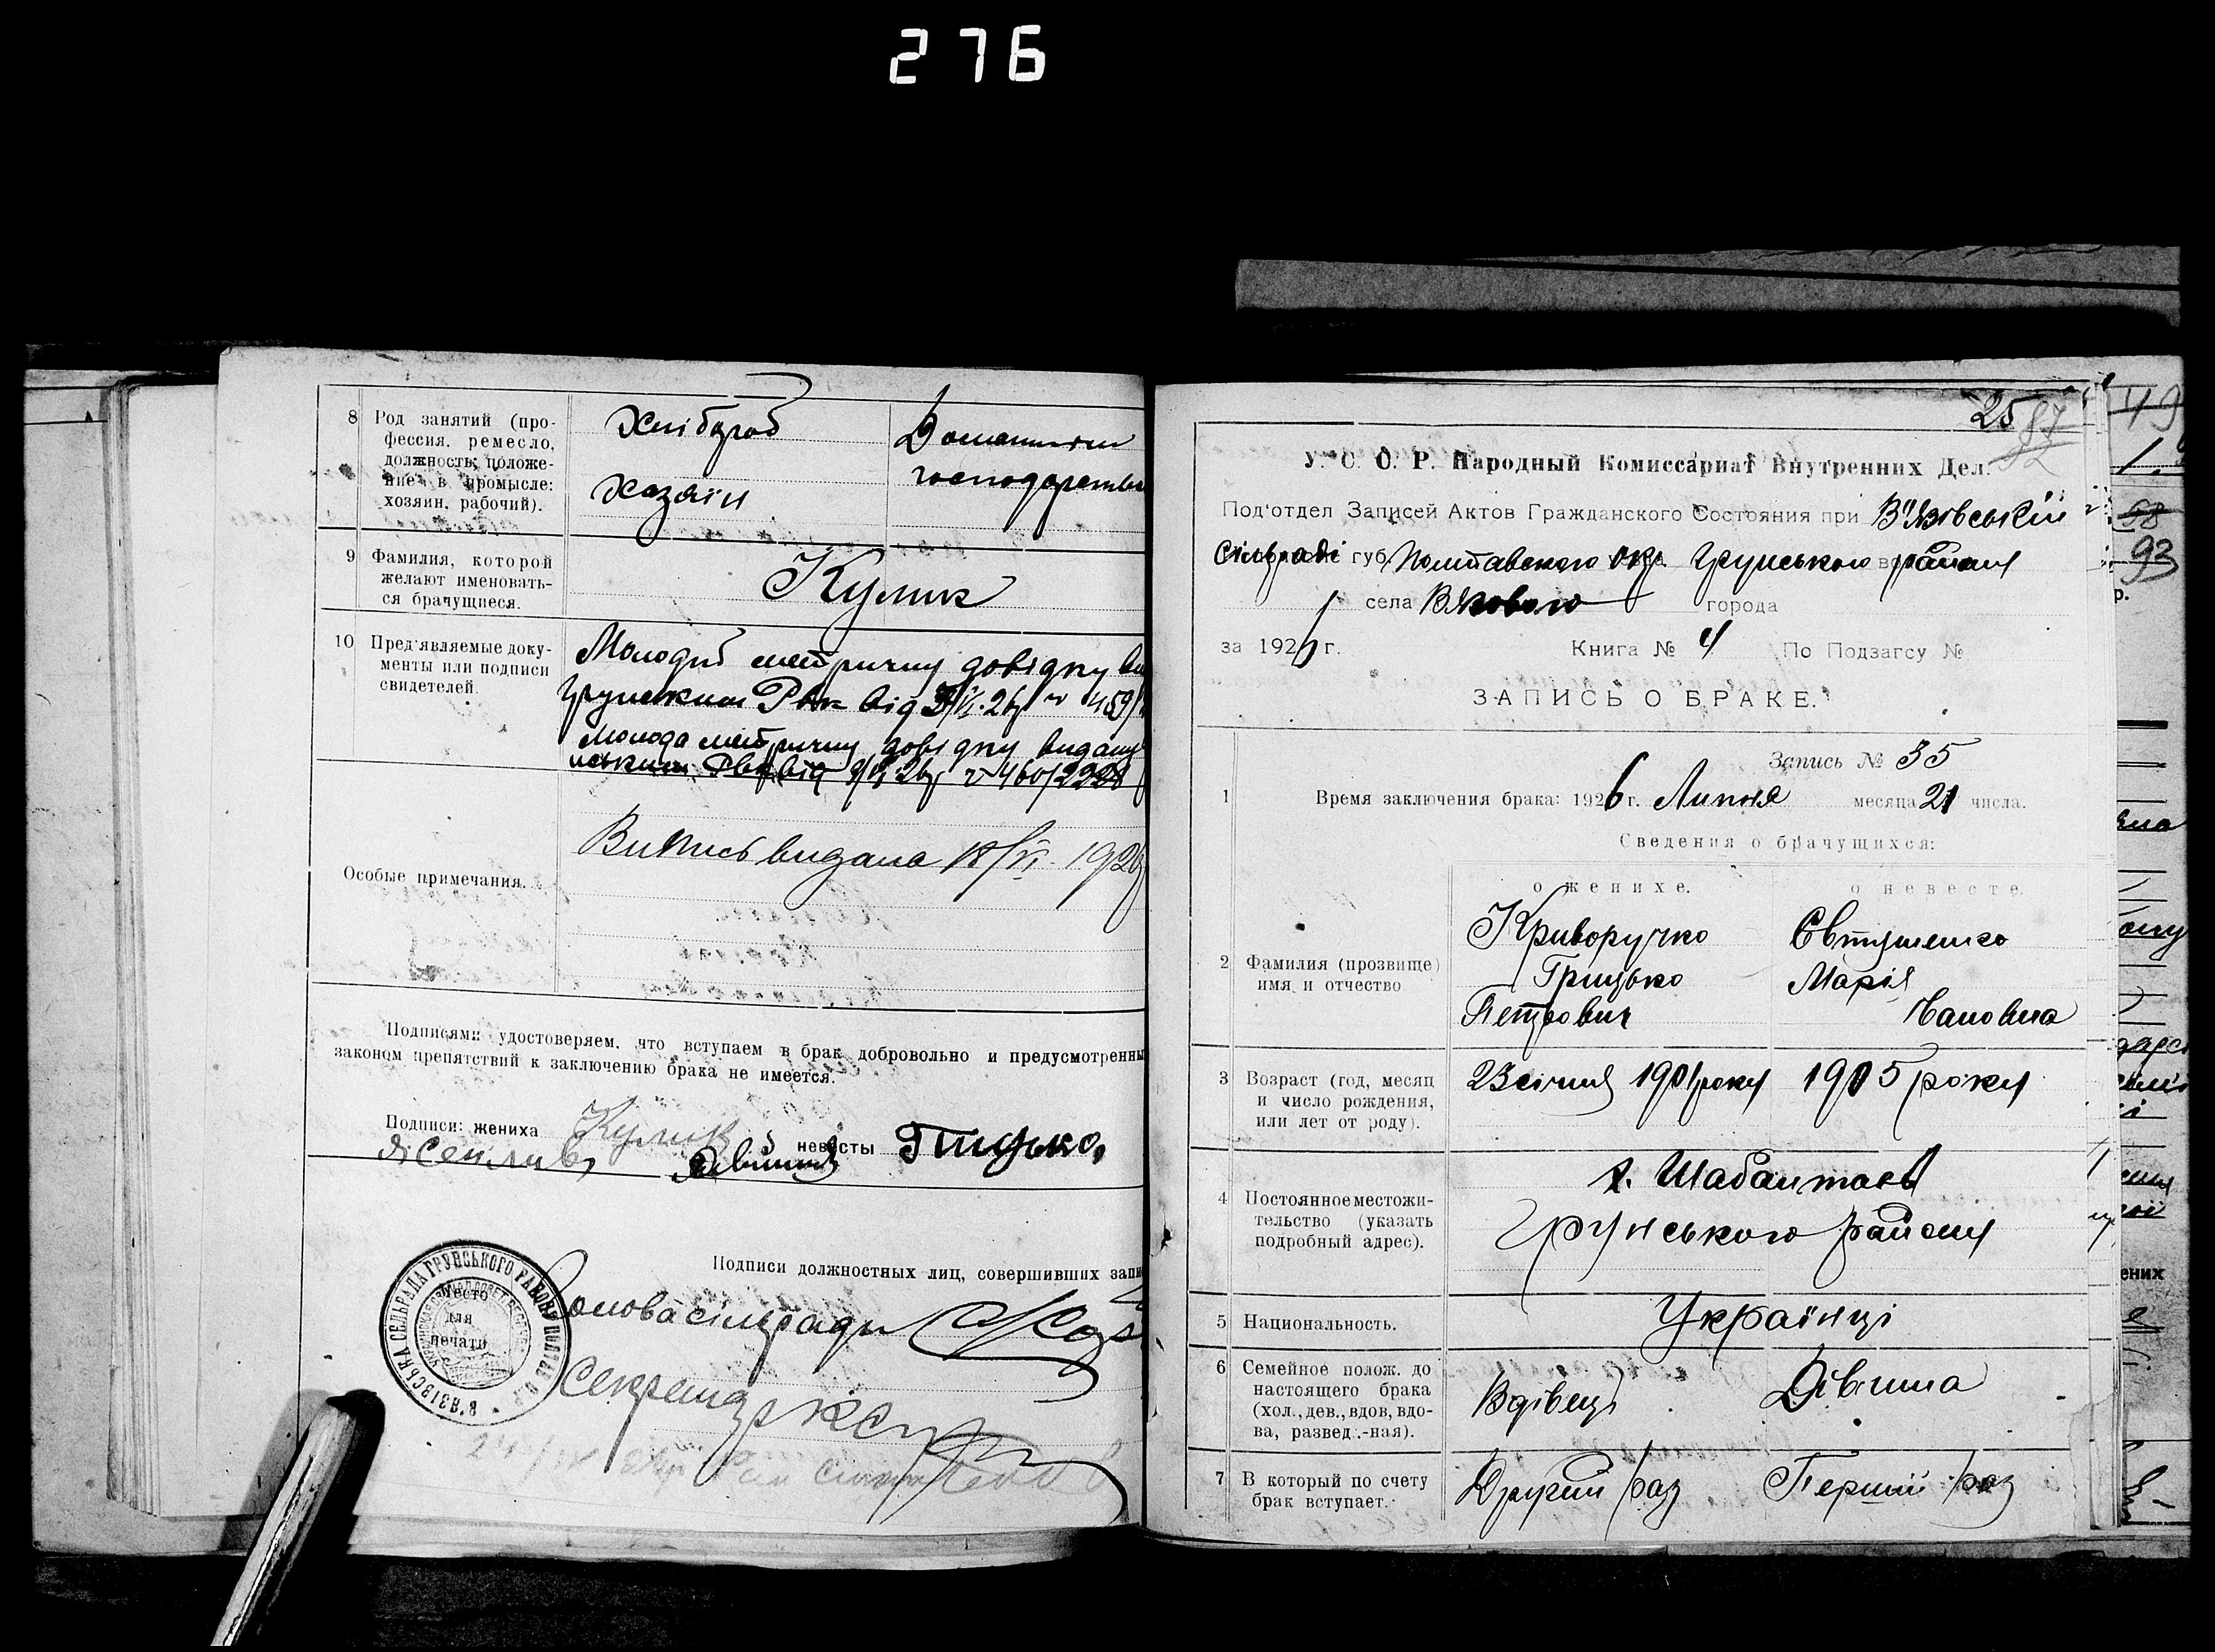 276
8 Род занятий (про-
фессия, ремесло,
должность; положе-
ние в промысле:
хозяин, рабочий).
Хлібороб
Хазяїн
Домашнєм
господарством
9 Фамилия, которой
желают именовать-
ся брачущиеся.
Кулик
10 Пред'являемые доку-
менты или подписи
свидетелей.
Молодий метричну довідку
Грунським РВК від 26р № 459/
Молода метричну довідку видану
ським РВК від 26р № 460/2228
Особые примечания.
Випись видана 18/VI 1926
Подписями удостоверяем, что вступаем в брак добровольно и предусмотренны
законом препятствий к заключению брака не имеется.
Подписи: жениха Кулик невесты Гтицько,
Подписи должностных лиц, совершивших запи
Место
для
печати
В'ЯЗІВСЬКА СЕЛЬРАДА ГРУНСЬКОГО РАЙОНУ ПОЛТАВ. О.Р.
Голова сільради
Секретар
25 87
92
У. С. О. Р. Народный Комиссариат Внутренних Дел.
Под'отдел Записей Актов Гражданского Состояния при В'язівській
Сільраді губ. Полтавского окр. Грунського района
села В'язового города
за 1926 г. Книга № 4 По Подзагсу №
ЗАПИСЬ О БРАКЕ.
Запись № 35
1 Время заключения брака: 1926 г. Липня месяца 21 числа.
Сведения о брачущихся:
о женихе. о невесте.
2 Фамилия (прозвище)
имя и отчество
Криворучко Євтушенко
Грицько Марія
Петрович Івановна
3 Возраст (год, месяц
и число рождения,
или лет от роду).
23 січня 1901 року 1905 року
4 Постоянное местожи-
тельство (указать
подробный адрес).
х. Шабалтаєв
Грунського району
5 Национальность.
Українці
6 Семейное полож. до
настоящего брака
(хол., дев., вдов, вдо-
ва, развед.-ная).
Вдівець Дівчина
7 В который по счету
брак вступает.
Другий раз Перший раз
49
58
93